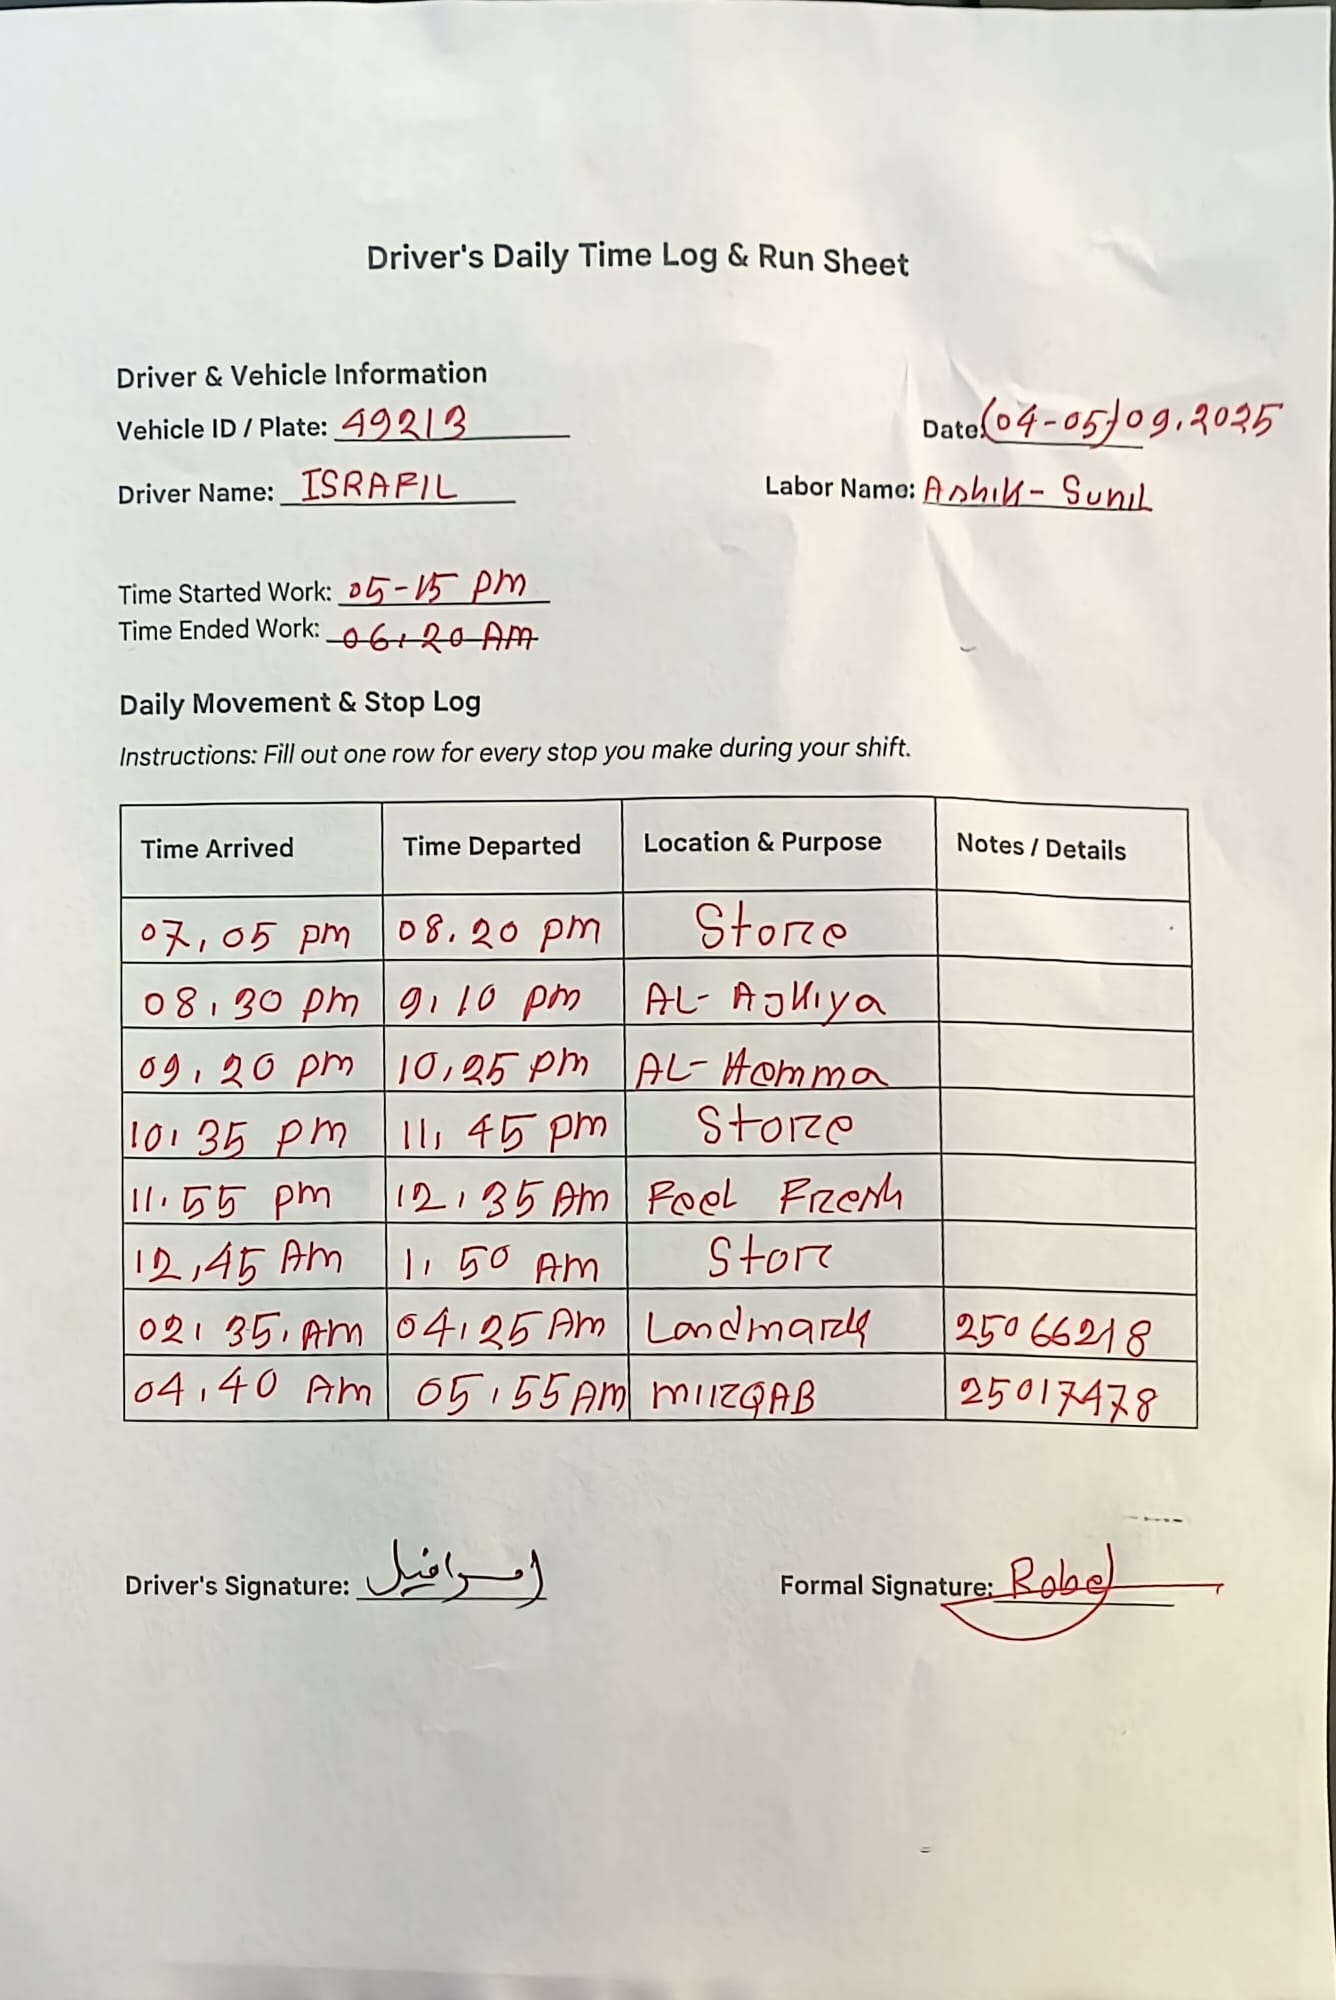 Driver's Daily Time Log & Run Sheet
Driver & Vehicle Information
Vehicle ID / Plate: 49213 Date: (04-05)09.2025
Driver Name: ISRAFIL Labor Name: Ashik - Sunil
Time Started Work: 05-15 pm
Time Ended Work: 06.20 AM
Daily Movement & Stop Log
Instructions: Fill out one row for every stop you make during your shift.
Time Arrived Time Departed Location & Purpose Notes / Details
07.05 pm 08.20 pm Store
08.30 pm 9.10 pm AL- Ajkiya
09.20 pm 10.25 pm AL- Hemma
10.35 pm 11.45 pm Store
11.55 pm 12.35 Am Feel Fresh
12.45 Am 1.50 Am Stor
02.35. Am 04.25 Am Landmark 25066218
04.40 Am 05.55 Am MIRQAB 25017478
Driver's Signature: اسرافيل Formal Signature: Robel